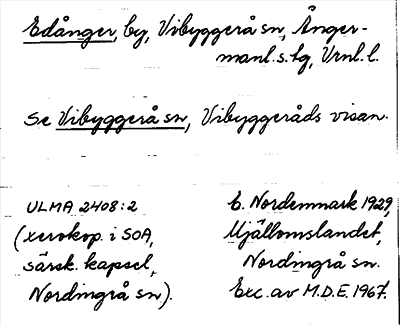 Edånger, by, Vibyggerå sn, Ånger-
manl.s.tg, Vrnl.l.
Se Vibyggerå sn, Vibyggeråds visan.
ULMA 2408:2
(xerokop. i SOA,
särsk. kapsel,
Nordingrå sn).
E. Nordenmark 1929,
Mjällomslandet,
Nordingrå sn.
Exc. av M.D.E. 1967.